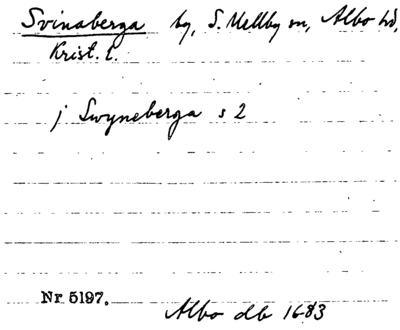 Svinaberga by, S. Mellby sn, Albo hd,
Krist. l.
j Swyneberga s 2
Nr 5197.
Albo db 1683